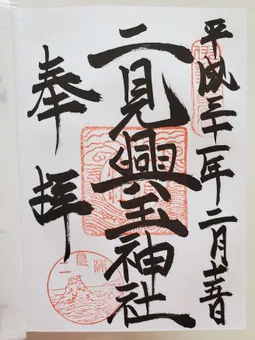 平成三十一年二月十五日
二見興玉神社
奉拝